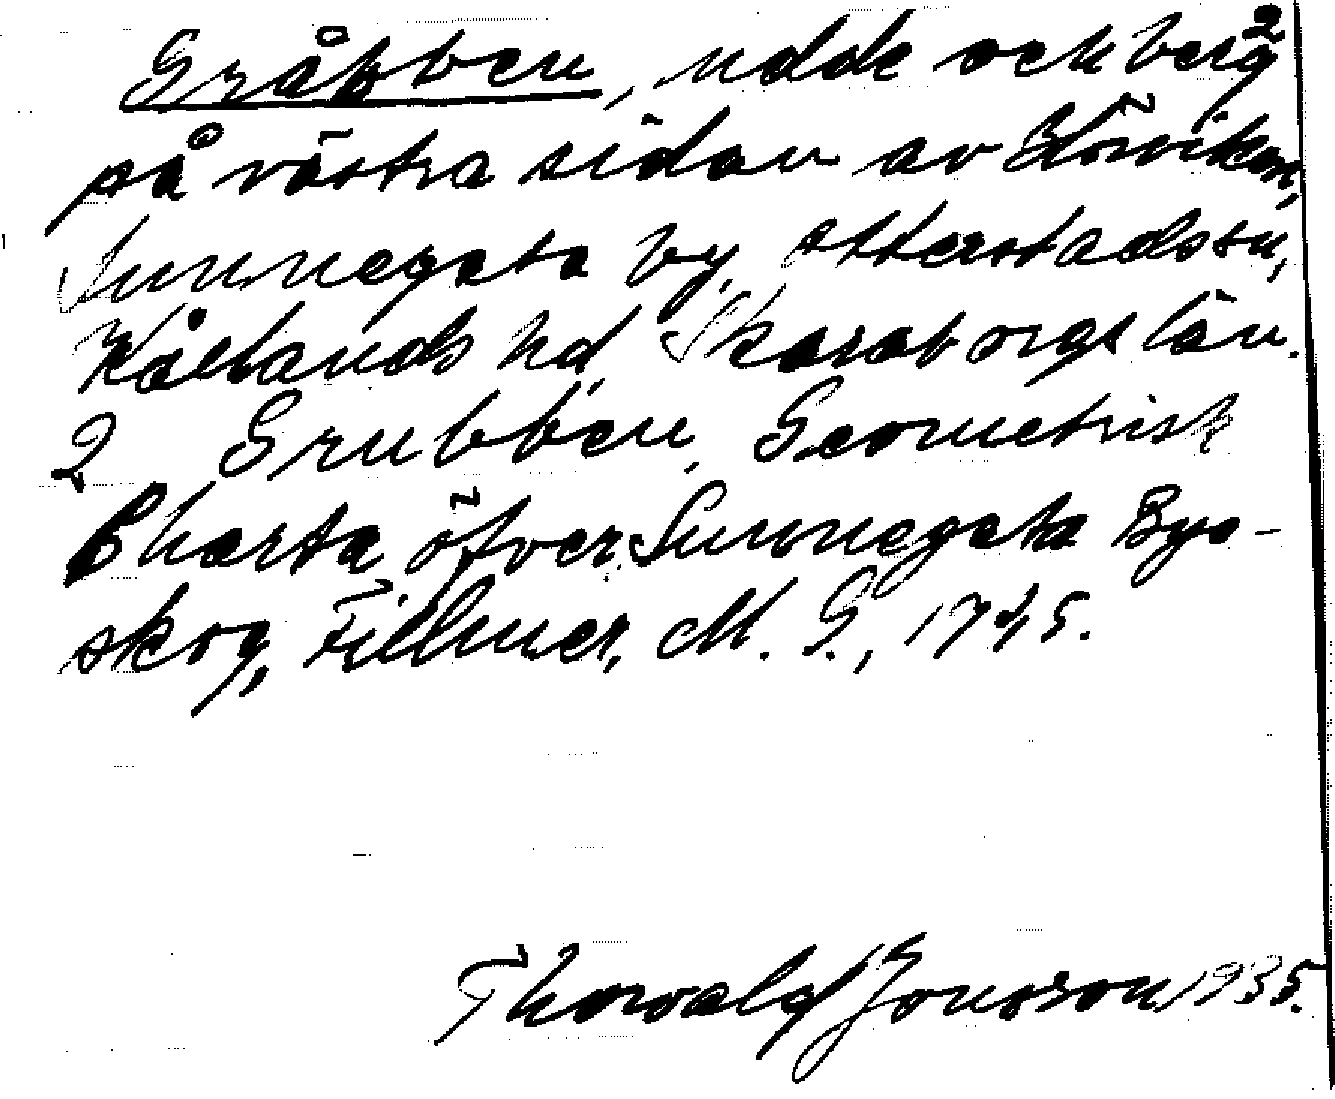 Gråbben, udde och berg 2
på västra sidan av Ulöviken,
Sunnegeta by, Otterstads sn,
Kållands hd, Skaraborgs län.
2 Grubben, Geometrisk
Charta öfver Sunnegeta Bys-
skog, Fillmer, M. G., 1745.
Thorvald Jonsson 1935.